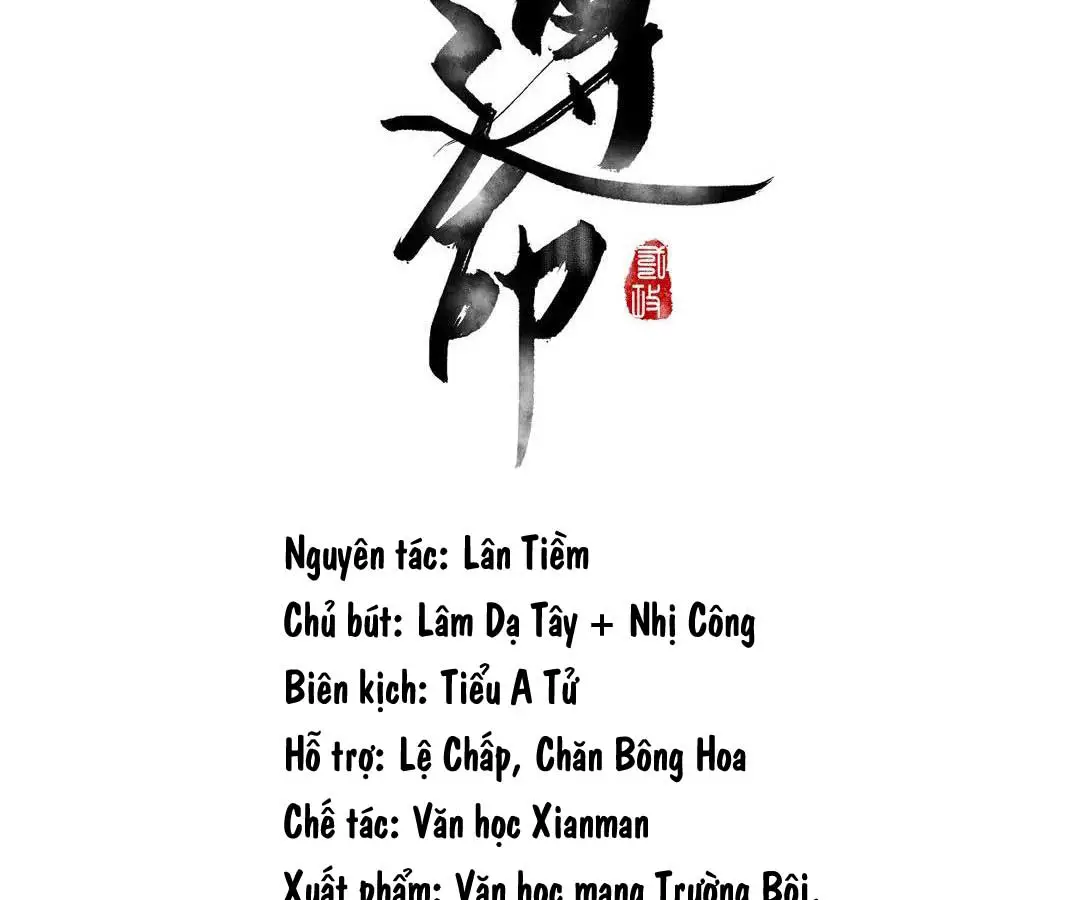 印
Nguyên tác: Lân Tiềm
Chủ bút: Lâm Dạ Tây + Nhị Công
Biên kịch: Tiểu A Tử
Hỗ trợ: Lệ Chấp, Chăn Bông Hoa
Chế tác: Văn học Xianman
Xuất phẩm: Văn học mạng Trường Bội,